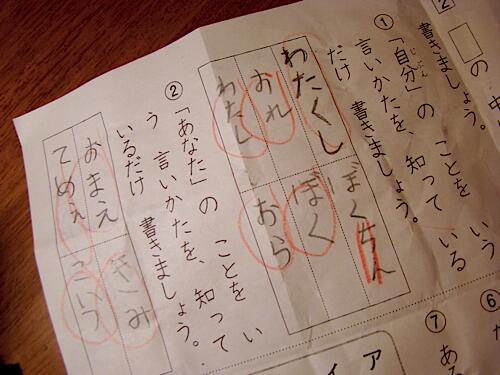 ② □の中
書きましょう。
① 「自分」の ことを いう
じぶん
言いかたを、知って いる
だけ 書きましょう。
わたくし
ぼくちん
おれ
ぼく
わたし
おら
② 「あなた」の ことを い
う 言いかたを、知って
いるだけ 書きましょう。
おまえ
きみ
てめえ
こいつ
⑥
⑦ ある
ア
イ